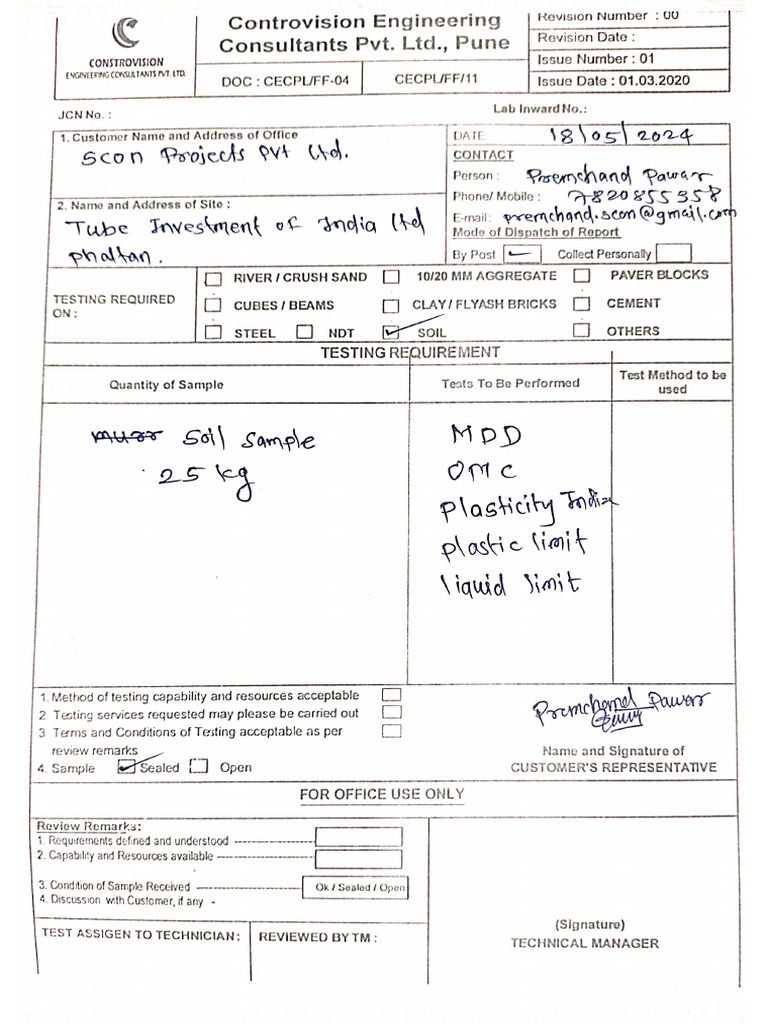 CONSTROVISION
ENGINEERING CONSULTANTS PVT. LTD.
Controvision Engineering
Consultants Pvt. Ltd., Pune
DOC : CECPL/FF-04
CECPL/FF/11
Revision Number : 00
Revision Date :
Issue Number : 01
Issue Date : 01.03.2020
JCN No. :
Lab Inward No.:
1. Customer Name and Address of Office
Scon Projects Pvt Ltd.
2. Name and Address of Site :
Tube Investment of India ltd
phaltan.
DATE 18/05/2024
CONTACT
Person : Premchand Pawar
Phone/ Mobile : 7820855358
E-mail: premchand.scon@gmail.com
Mode of Dispatch of Report
By Post Collect Personally
TESTING REQUIRED
ON :
RIVER / CRUSH SAND 10/20 MM AGGREGATE PAVER BLOCKS
CUBES / BEAMS CLAY / FLYASH BRICKS CEMENT
STEEL NDT SOIL OTHERS
TESTING REQUIREMENT
Quantity of Sample
Tests To Be Performed
Test Method to be
used
Soil Sample
25 kg
MDD
OMC
Plasticity Index
plastic limit
liquid limit
1. Method of testing capability and resources acceptable
2 Testing services requested may please be carried out
3 Terms and Conditions of Testing acceptable as per
review remarks
4. Sample Sealed Open
Premchand Pawar
Name and Signature of
CUSTOMER'S REPRESENTATIVE
FOR OFFICE USE ONLY
Review Remarks:
1. Requirements defined and understood
2. Capability and Resources available
3. Condition of Sample Received Ok / Sealed / Open
4. Discussion with Customer, if any -
TEST ASSIGEN TO TECHNICIAN :
REVIEWED BY TM :
(Signature)
TECHNICAL MANAGER